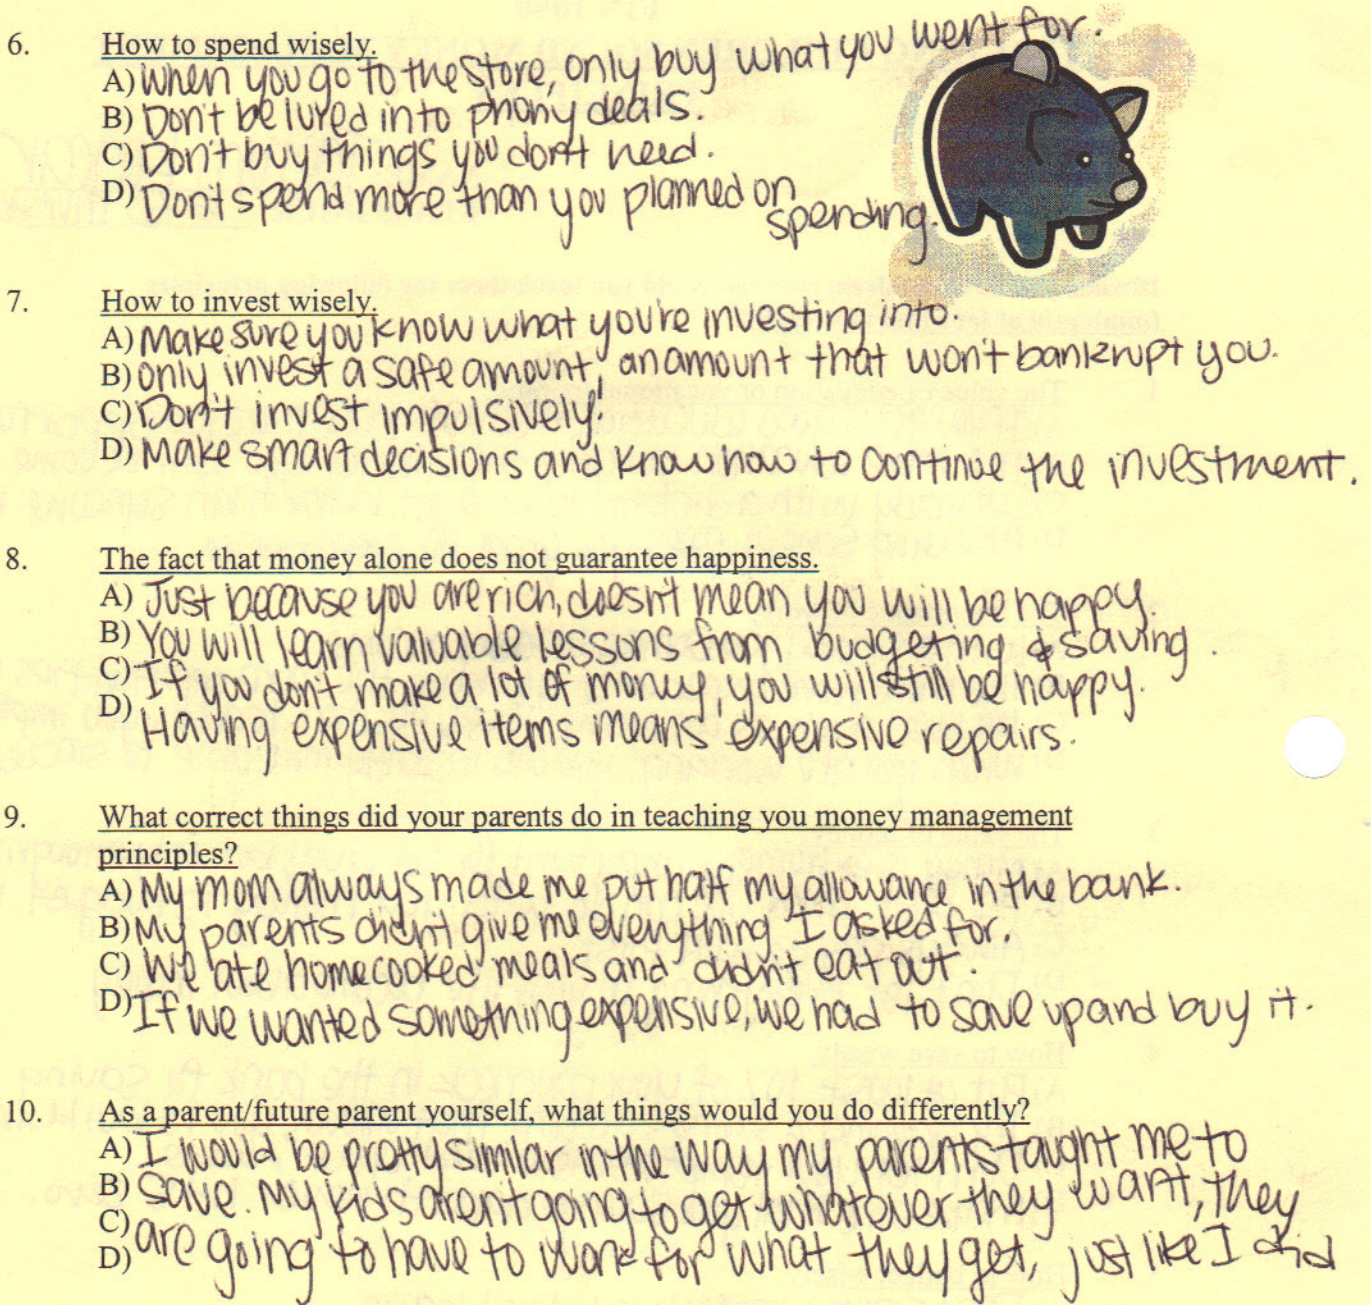 6. How to spend wisely.
A) When you go to the store, only buy what you went for.
B) Don't be lured into phony deals.
C) Don't buy things you don't need.
D) Don't spend more than you planned on
spending.
7. How to invest wisely.
A) Make sure you know what you're investing into.
B) only invest a safe amount, an amount that won't bankrupt you.
C) Don't invest impulsively.
D) Make smart decisions and know how to continue the investment.
8. The fact that money alone does not guarantee happiness.
A) Just because you are rich, doesn't mean you will be happy.
B) You will learn valuable lessons from budgeting & saving.
C) If you don't make a lot of money, you will still be happy.
D) Having expensive items means expensive repairs.
9. What correct things did your parents do in teaching you money management
principles?
A) My mom always made me put half my allowance in the bank.
B) My parents didn't give me everything I asked for.
C) We ate homecooked meals and didn't eat out.
D) If we wanted something expensive, we had to save up and buy it.
10. As a parent/future parent yourself, what things would you do differently?
A) I would be pretty similar in the way my parents taught me to
B) save. My kids arent going to get whatever they want, they
C) are going to have to work for what they get, just like I did
D)